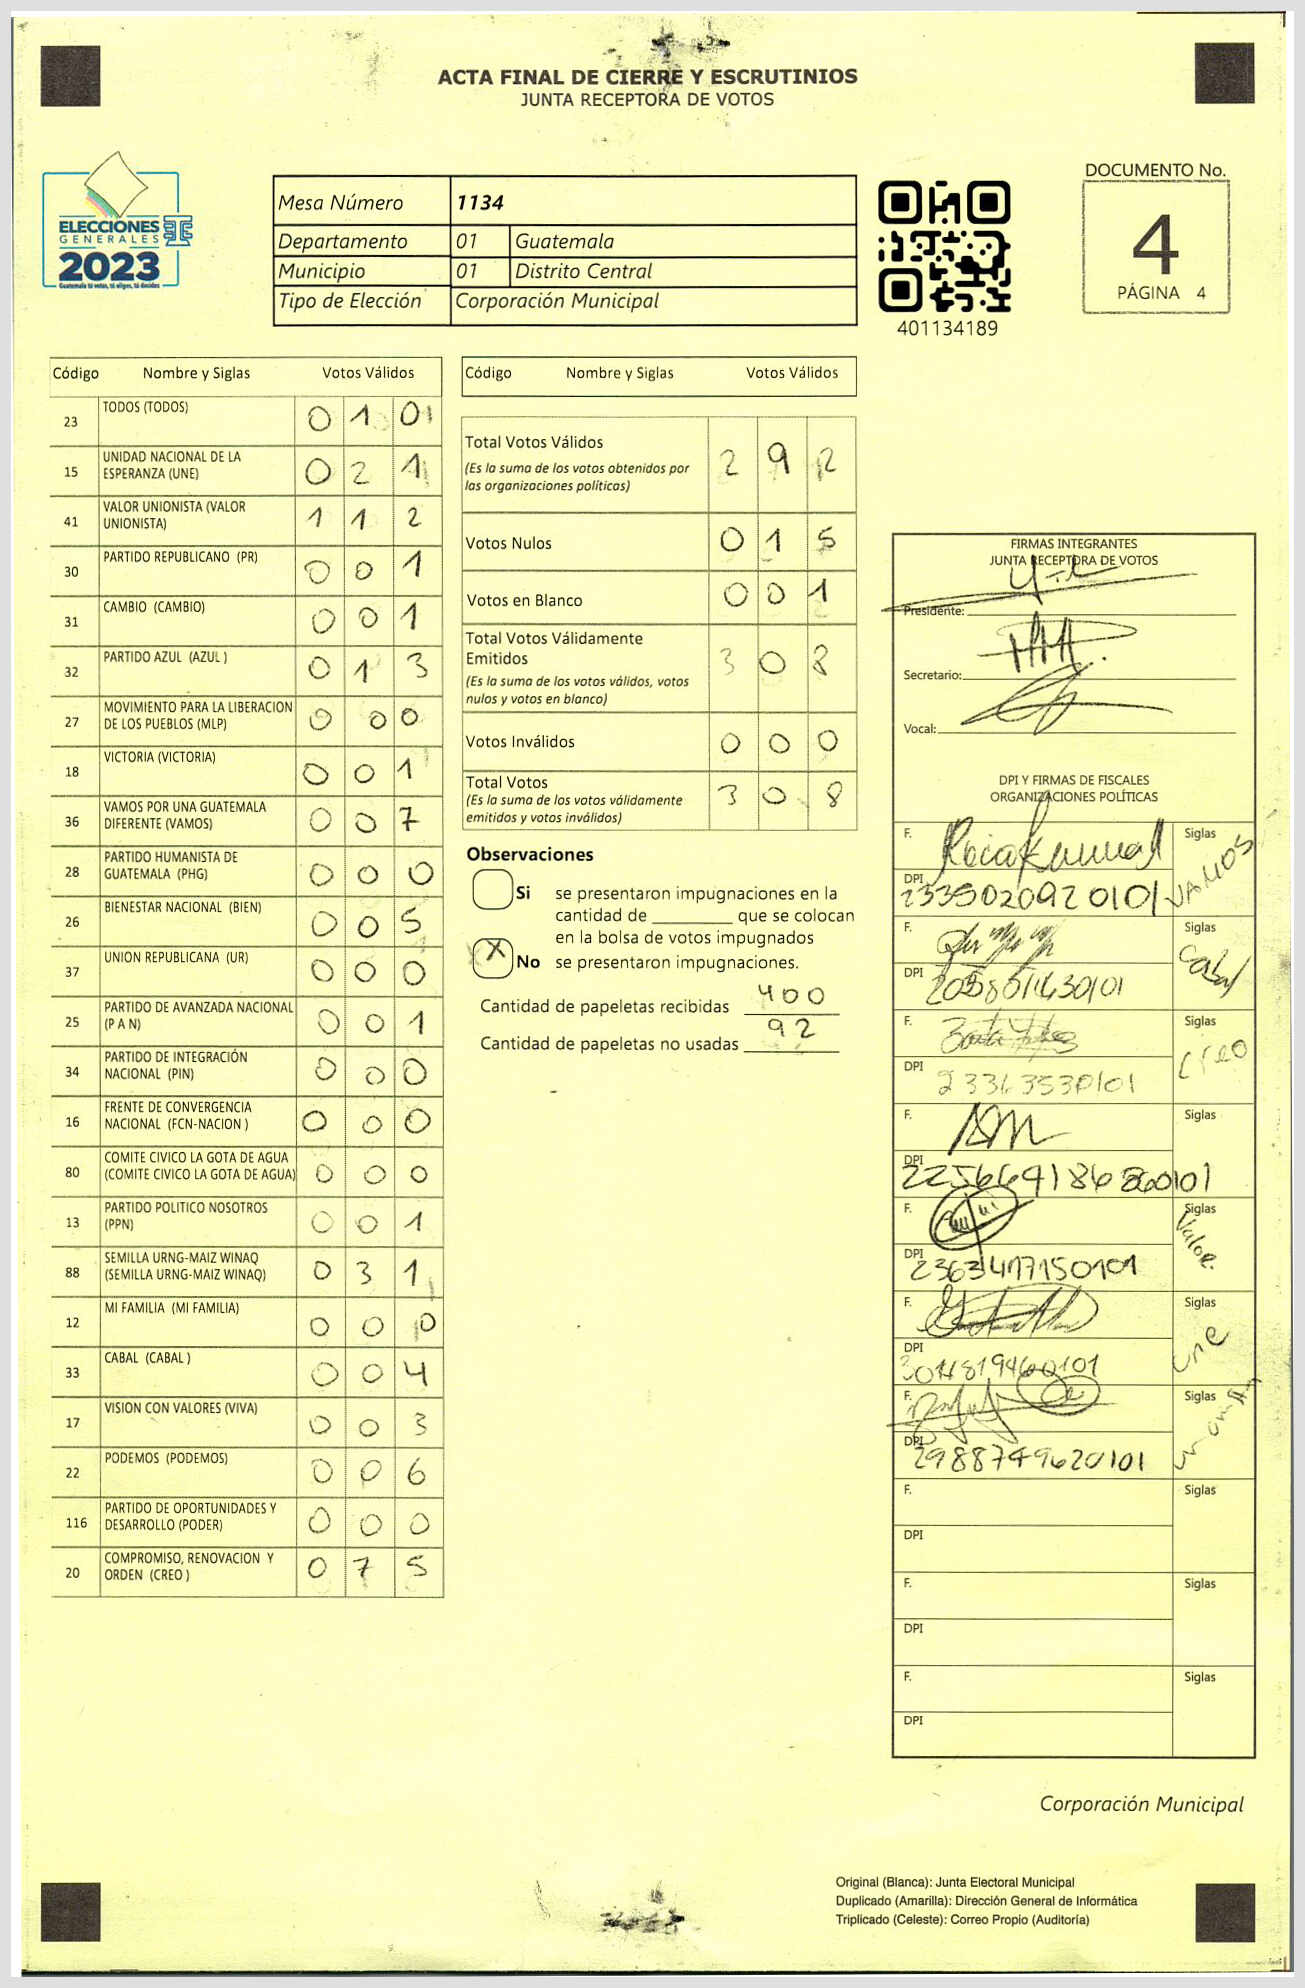 ACTA FINAL DE CIERRE Y ESCRUTINIOS
JUNTA RECEPTORA DE VOTOS
ELECCIONES
GENERALES
2023
Guatemala tú votas, tú eliges, tú decides
Mesa Número 1134
Departamento 01 Guatemala
Municipio 01 Distrito Central
Tipo de Elección Corporación Municipal
401134189
DOCUMENTO No.
4
PÁGINA 4
Código Nombre y Siglas Votos Válidos
23 TODOS (TODOS) 0 1 0
15 UNIDAD NACIONAL DE LA
ESPERANZA (UNE) 0 2 1
41 VALOR UNIONISTA (VALOR
UNIONISTA) 1 1 2
30 PARTIDO REPUBLICANO (PR) 0 0 1
31 CAMBIO (CAMBIO) 0 0 1
32 PARTIDO AZUL (AZUL ) 0 1 3
27 MOVIMIENTO PARA LA LIBERACION
DE LOS PUEBLOS (MLP) 0 0 0
18 VICTORIA (VICTORIA) 0 0 1
36 VAMOS POR UNA GUATEMALA
DIFERENTE (VAMOS) 0 0 7
28 PARTIDO HUMANISTA DE
GUATEMALA (PHG) 0 0 0
26 BIENESTAR NACIONAL (BIEN) 0 0 5
37 UNION REPUBLICANA (UR) 0 0 0
25 PARTIDO DE AVANZADA NACIONAL
(P A N) 0 0 1
34 PARTIDO DE INTEGRACIÓN
NACIONAL (PIN) 0 0 0
16 FRENTE DE CONVERGENCIA
NACIONAL (FCN-NACION ) 0 0 0
80 COMITE CIVICO LA GOTA DE AGUA
(COMITE CIVICO LA GOTA DE AGUA) 0 0 0
13 PARTIDO POLITICO NOSOTROS
(PPN) 0 0 1
88 SEMILLA URNG-MAIZ WINAQ
(SEMILLA URNG-MAIZ WINAQ) 0 3 1
12 MI FAMILIA (MI FAMILIA) 0 0 0
33 CABAL (CABAL ) 0 0 4
17 VISION CON VALORES (VIVA) 0 0 3
22 PODEMOS (PODEMOS) 0 0 6
116 PARTIDO DE OPORTUNIDADES Y
DESARROLLO (PODER) 0 0 0
20 COMPROMISO, RENOVACION Y
ORDEN (CREO ) 0 7 5
Código Nombre y Siglas Votos Válidos
Total Votos Válidos 2 9 2
(Es la suma de los votos obtenidos por
las organizaciones políticas)
Votos Nulos 0 1 5
Votos en Blanco 0 0 1
Total Votos Válidamente
Emitidos 3 0 8
(Es la suma de los votos válidos, votos
nulos y votos en blanco)
Votos Inválidos 0 0 0
Total Votos 3 0 8
(Es la suma de los votos válidamente
emitidos y votos inválidos)
Observaciones
Si se presentaron impugnaciones en la
cantidad de ________ que se colocan
en la bolsa de votos impugnados
X No se presentaron impugnaciones.
Cantidad de papeletas recibidas 400
Cantidad de papeletas no usadas 92
FIRMAS INTEGRANTES
JUNTA RECEPTORA DE VOTOS
Presidente:
Secretario:
Vocal:
DPI Y FIRMAS DE FISCALES
ORGANIZACIONES POLÍTICAS
F. Siglas VAMOS
DPI 2335020920101
F. Siglas Cabal
DPI
F. Siglas Creo
DPI
F. Siglas
DPI
F. Siglas Valor.
DPI 2363417150101
F. Siglas une
DPI
F. Siglas
DPI 2988749620101
F. Siglas
DPI
F. Siglas
DPI
F. Siglas
DPI
Corporación Municipal
Original (Blanca): Junta Electoral Municipal
Duplicado (Amarilla): Dirección General de Informática
Triplicado (Celeste): Correo Propio (Auditoría)